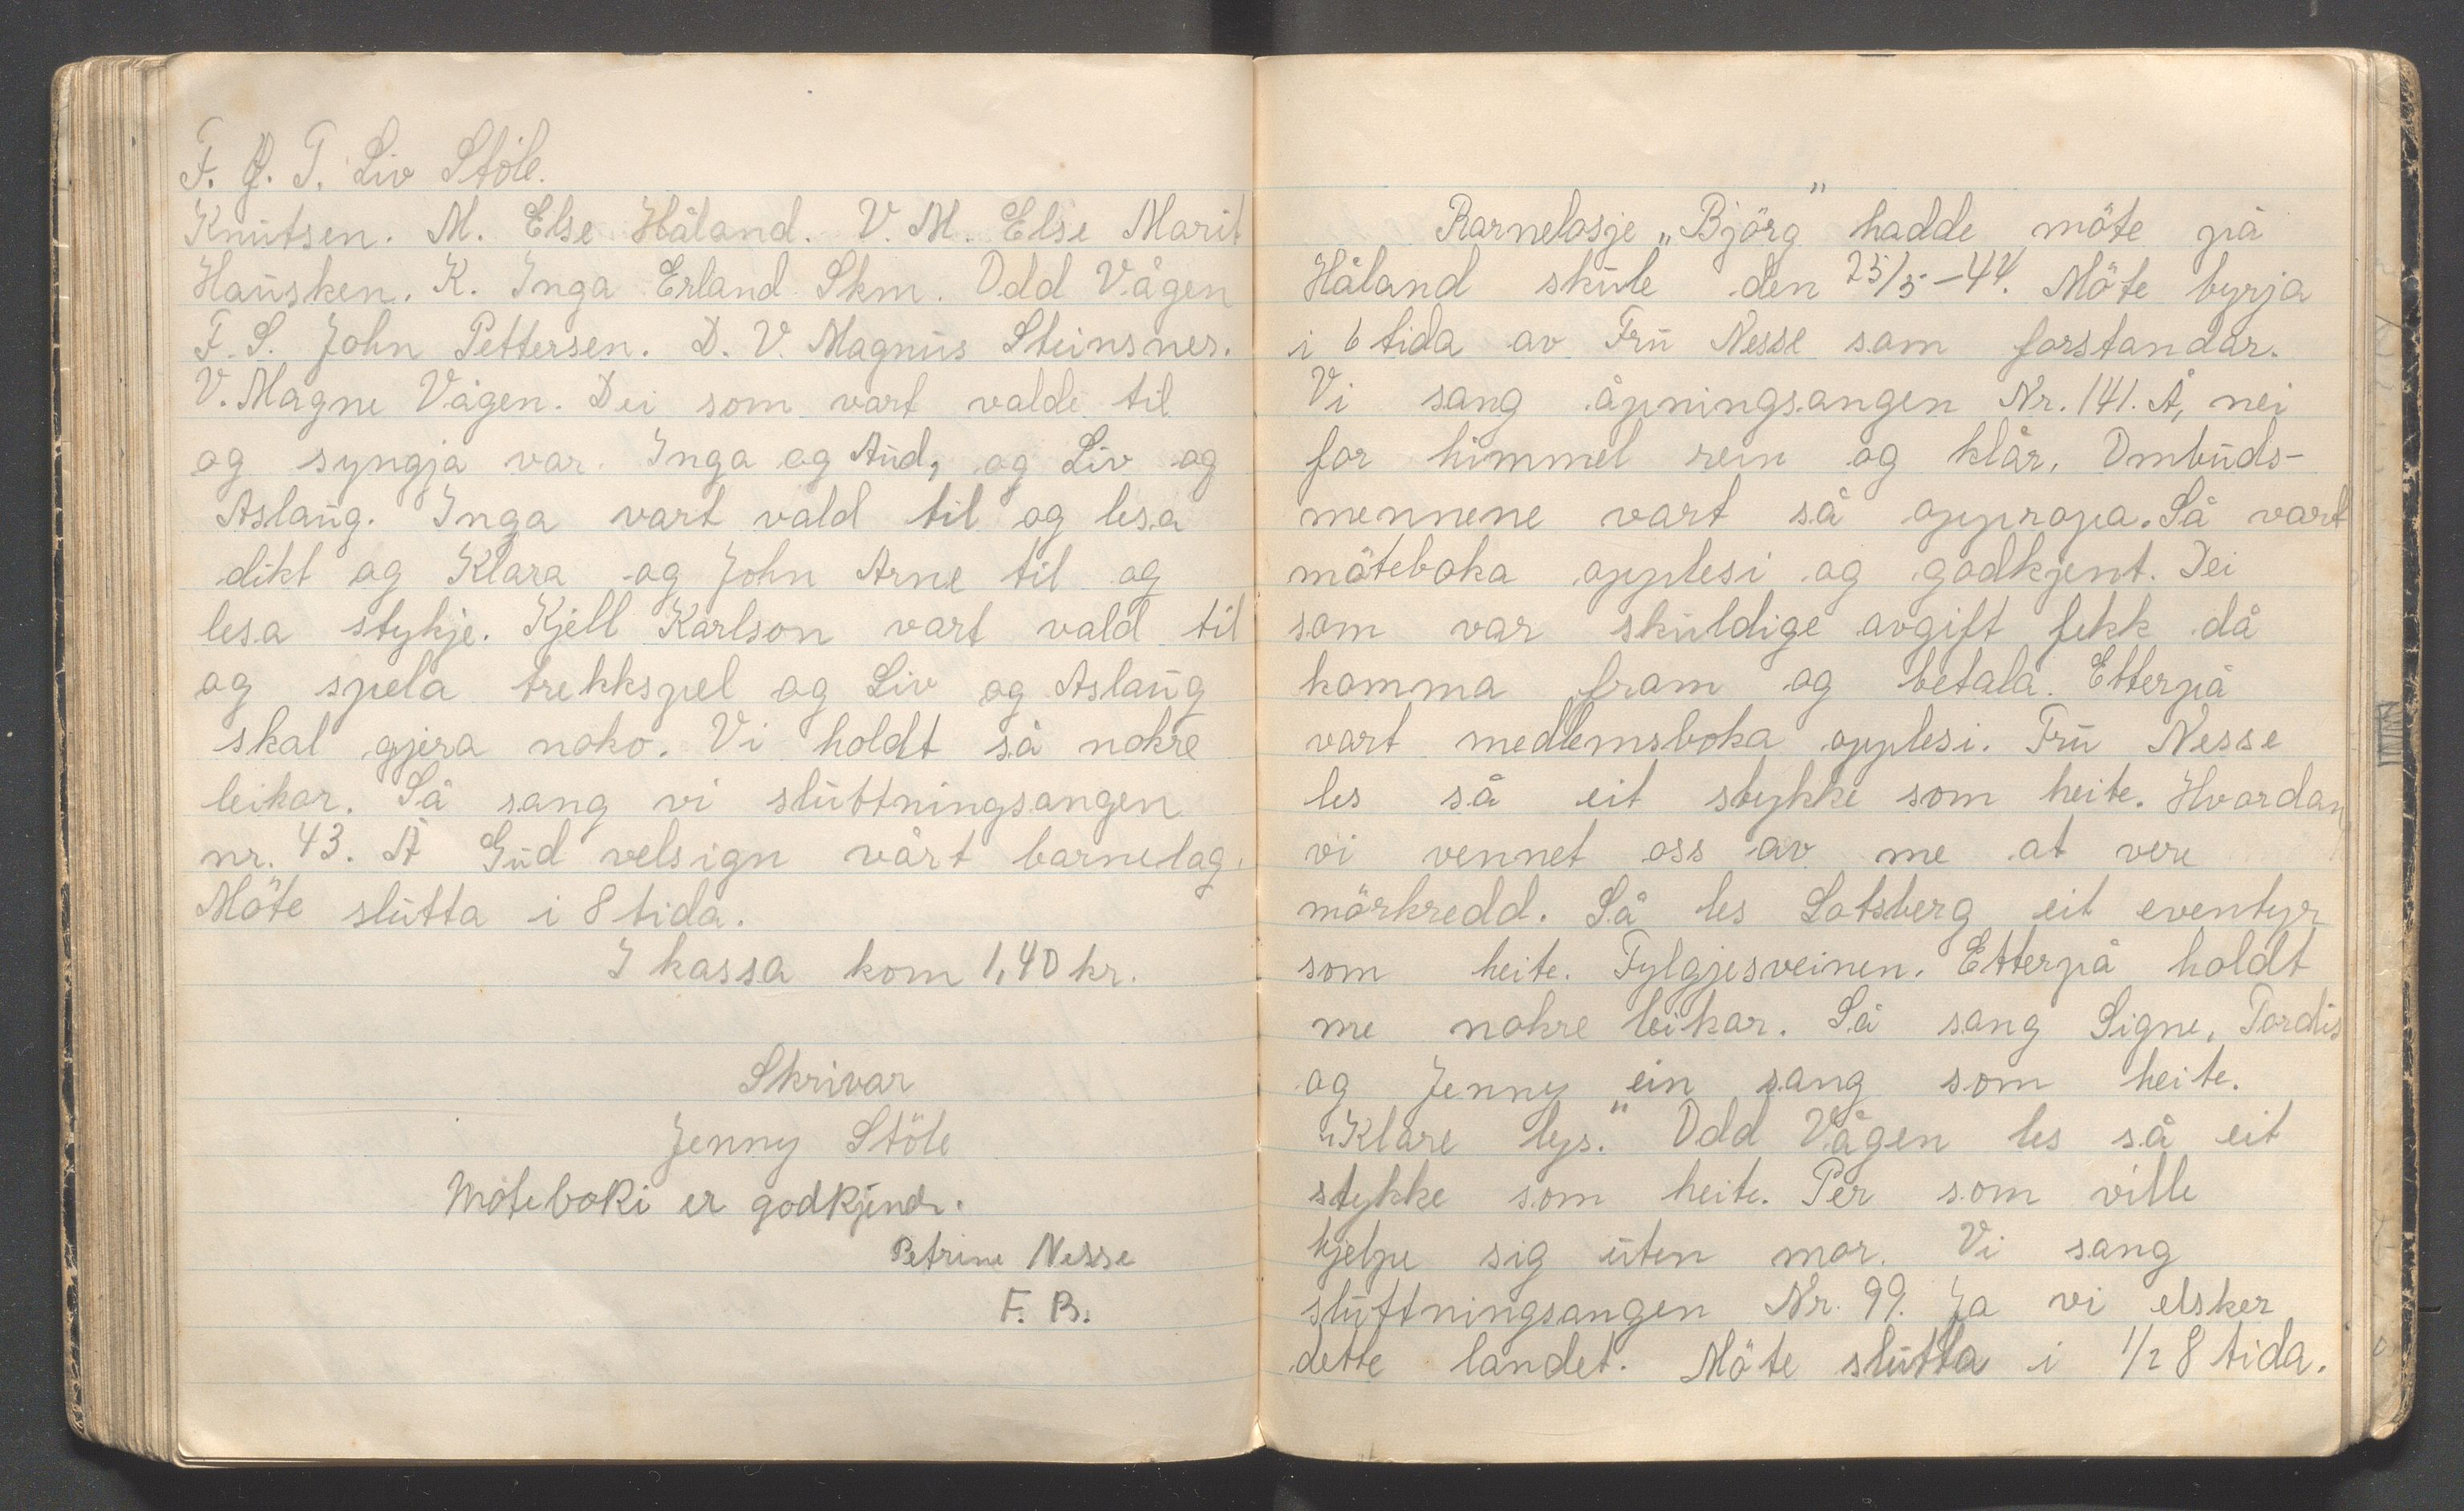 F. Ø. T. Liv Stöle.
Knutsen. M. Else Håland. V. M. Else Marit
Hausken. K. Inga Erland Skm. Odd Vågen
F. S. John Pettersen. D. V. Magnus Steinsnes.
V. Magne Vågen. Dei som vart valde til
og syngja var. Inga og Aud, og Liv og
Aslaug. Inga vart vald til og lesa
dikt og Klara og John Arne til og
lesa stykje. Kjell Karlson vart vald til
og spela trekkspel og Liv og Aslaug
skal gjera noko. Vi holdt så nokre
leikar. Så sang vi sluttningsangen
nr. 43. Å Gud velsign vårt barnelag.
Möte slutta i 8 tida.
I kassa kom 1,40 kr.
Skrivar
Jenny Stöle
Möteboki er godkjend.
Petrine Nesse
F. B.
Barnelosje „Björg" hadde möte på
Håland skule den 25/5-44. Möte byrja
i 6 tida av Fru Nesse som forstandar.
Vi sang åpningsangen Nr. 141. Å, nei
for himmel rein og klår. Ombuds-
mennene vart så oppropa. Så vart
möteboka opplesi og godkjent. Dei
som var skuldige avgift fekk då
komma fram og betala. Etterpå
vart medlemsboka opplesi. Fru Nesse
les så eit stykke som heite. Hvordan
vi vennet oss av me at vere
mörkredd. Så les Lotsberg eit eventyr
som heite. Fylgjesveinen. Etterpå holdt
me nokre leikar. Så sang Signe, Tordis
og Jenny ein sang som heite.
„Klare lys." Odd Vågen les så eit
stykke som heite. Per som ville
hjelpe sig uten mor. Vi sang
sluttningsangen Nr. 99. Ja vi elsker
dette landet. Möte slutta i 1/2 8 tida.